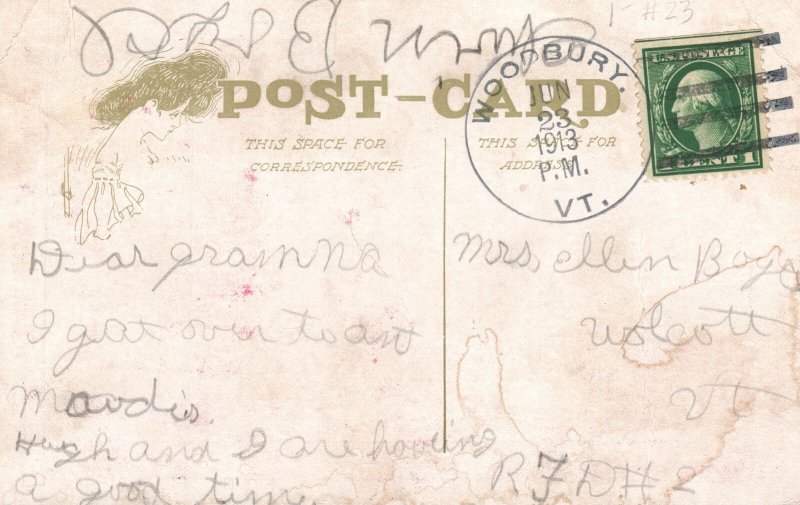 1-#23
POST-CARD
THIS SPACE FOR
CORRESPONDENCE.
THIS SPACE FOR
ADDRESS
WOODBURY.
JUN
23
1913
P.M.
VT.
U.S. POSTAGE
1 CENT 1
Dear gramma
I gat over to ant
Maudis.
Hugh and I are having
a good time.
Mrs ellen
Wolcott
Vt
RFD # 2